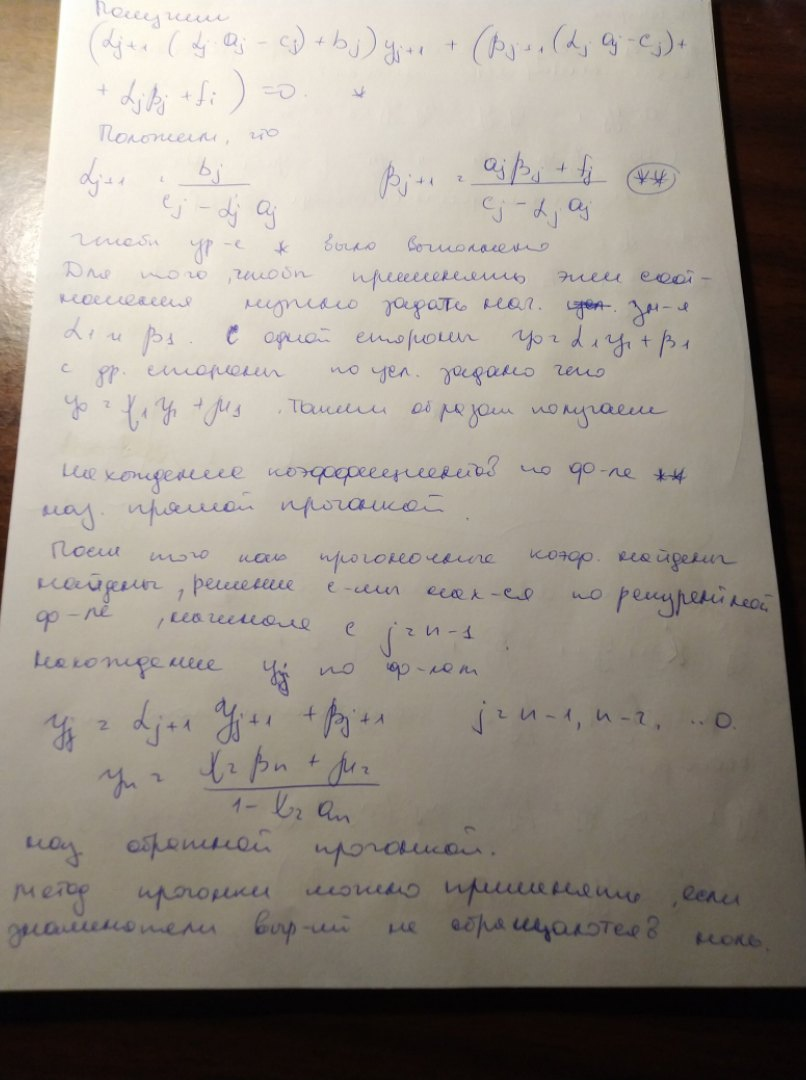 Получим
(αj+1 (αj aj − cj) + bj) yj+1 + (βj+1 (αj aj − cj) +
+ αjβj + fi) = 0. *
Положим, что
αj+1 = bj / (cj − αj aj) βj+1 = (ajβj + fj) / (cj − αj aj) (**)
чтобы ур-е * было выполнено
Для того, чтобы применять эти соот-
ношения нужно задать нач. зн-я
α1 и β1. С одной стороны y0 = α1y1 + β1
с др. стороны по усл. задано что
y0 = χ1 y1 + μ1. Таким образом получаем
Нахождение коэффициентов по ф-ле **
наз. прямой прогонкой.
После того как прогоночные коэф. найдены
найдены, решение с-мы нах-ся по рекурентной
ф-ле, начиная с j = n−1
Нахождение yj по ф-лам
yj = αj+1 yj+1 + βj+1 j = n−1, n−2, ..0.
yn = (χ2 βn + μ2) / (1 − χ2 αn)
наз обратной прогонкой.
Метод прогонки можно применять, если
знаменатели выр-ий не обращаются в ноль.